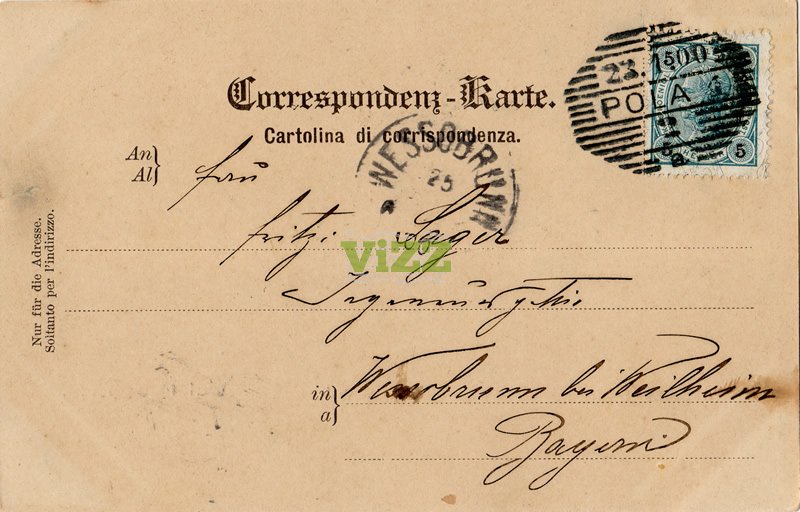 Correspondenz-Karte.
Cartolina di corrispondenza.
23.1.00
POLA 1
5
5
WESSOBRUNN
25
An
Al
Frau
Fritzi Sager
ViZZ
Ingenieursgattin
in
a
Wessobrunn bei Weilheim
Bayern
Nur für die Adresse.
Soltanto per l'indirizzo.